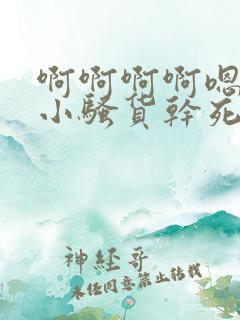 啊啊啊啊嗯
小骚货幹死
神經哥
未经同意禁止转载